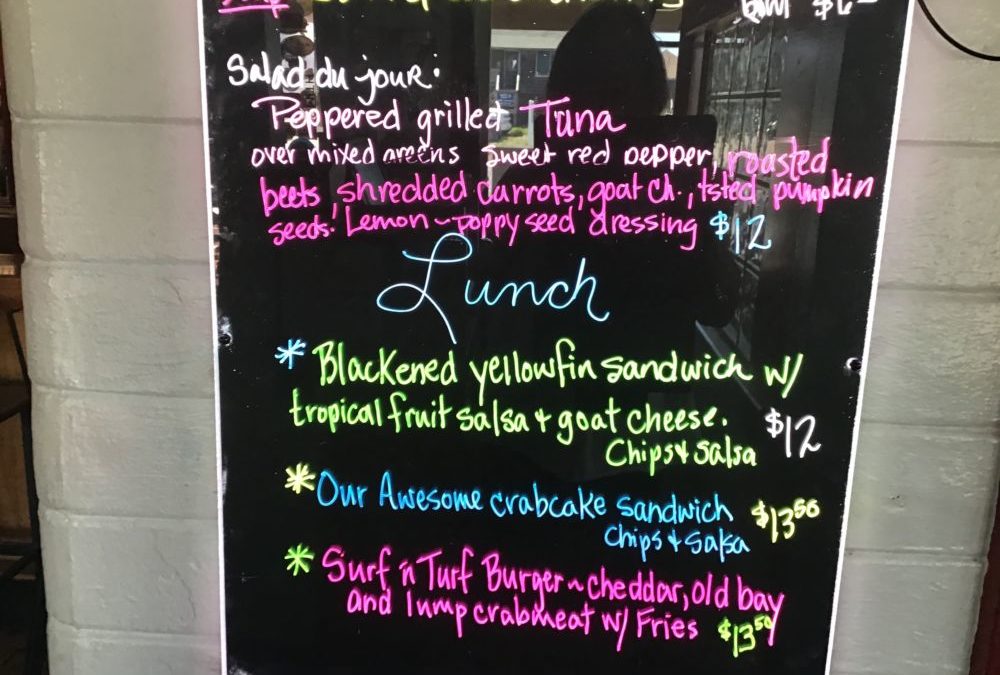 bowl $6
Salad du jour.
Peppered grilled Tuna
over mixed greens sweet red pepper, roasted
beets, shredded carrots, goat ch., tsted pumpkin
seeds! Lemon ~ poppy seed dressing $12
Lunch
* Blackened yellowfin sandwich w/
tropical fruit salsa & goat cheese.
$12
Chips & Salsa
* Our Awesome crabcake sandwich $13.50
Chips & Salsa
* Surf 'n Turf Burger ~ cheddar, old bay
and lump crabmeat w/ Fries $13.50